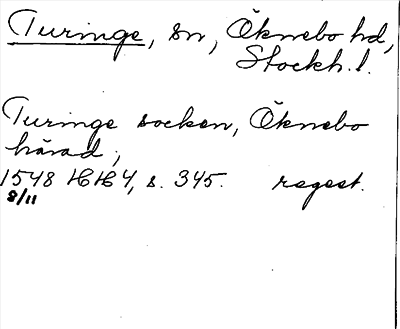 Turinge, sn, Öknebo hd,
Stockh. l.
Turinge socken, Öknebo
härad;
1548 HH 4, s. 345. regest.
8/11